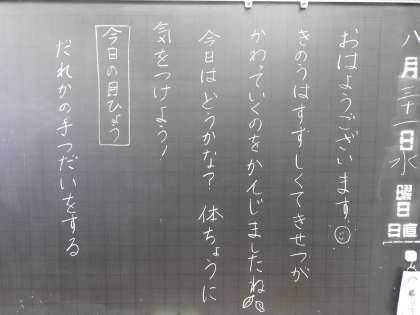 八月三十一日水曜日
日直
おはようございます。
きのうはすずしくてきせつが
かわっていくのをかんじましたね
今日はどうかな？体ちょうに
気をつけよう！
今日の目ひょう
だれかの手つだいをする